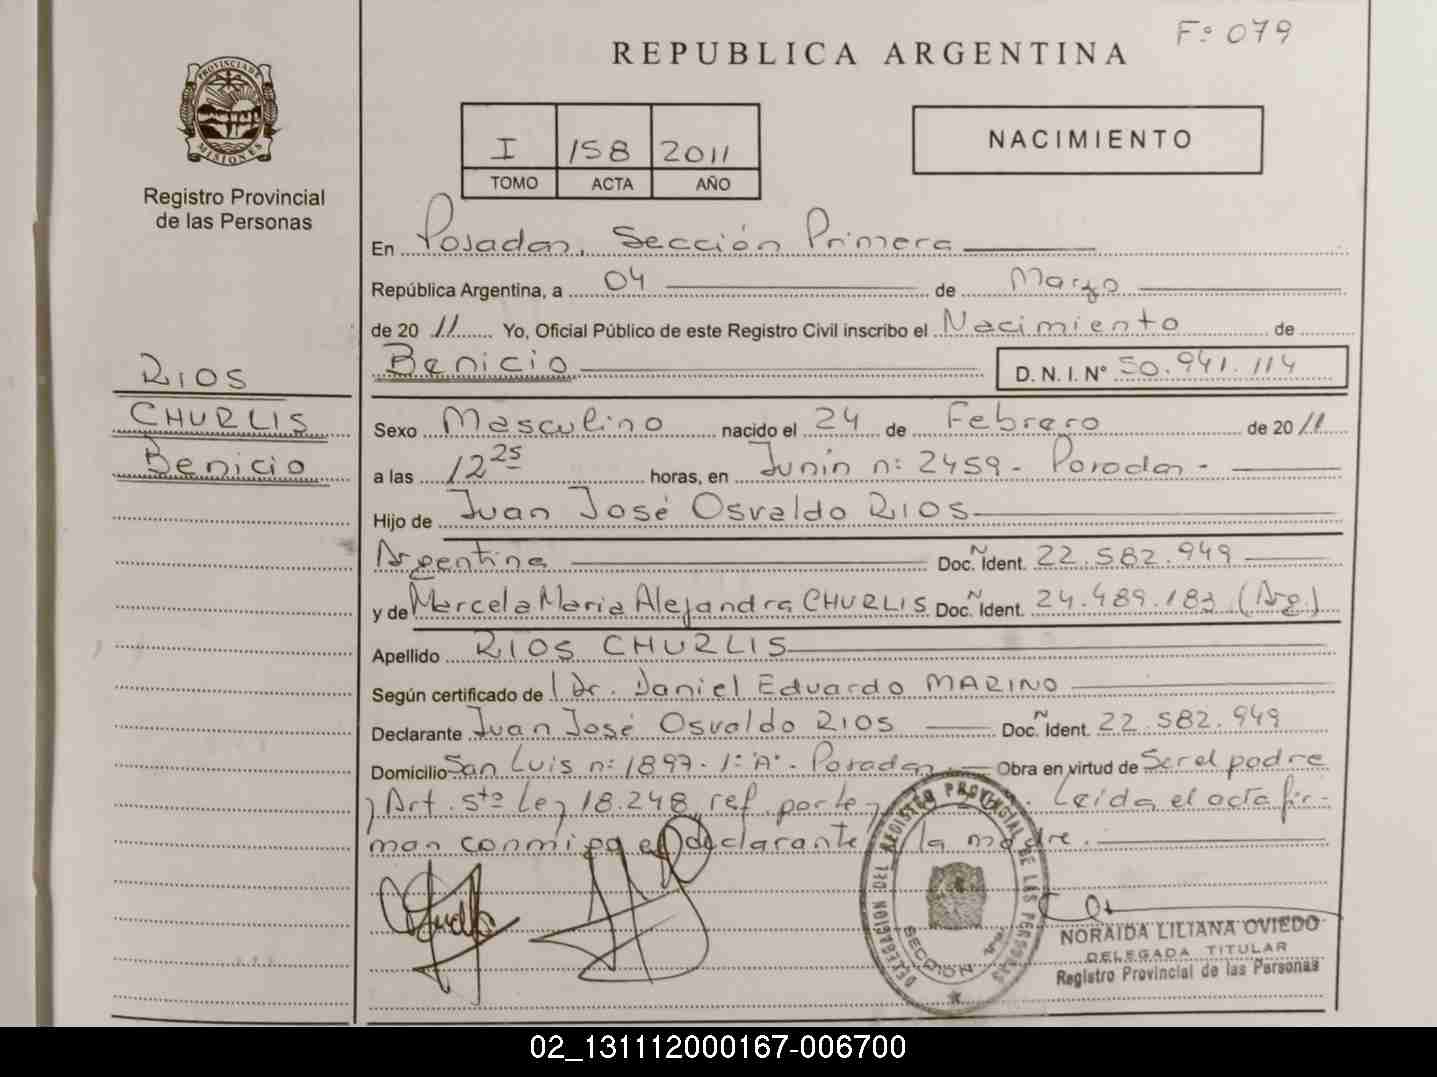 F:079
REPUBLICA ARGENTINA
PROVINCIA DE MISIONES
Registro Provincial
de las Personas
I 158 2011
TOMO ACTA AÑO
NACIMIENTO
En Posadas, Sección Primera
República Argentina, a 04 de Marzo
de 2011 Yo, Oficial Público de este Registro Civil inscribo el Nacimiento de
Benicio D. N. I. N° 50.941.114
RIOS
CHURLIS
Benicio
Sexo Masculino nacido el 24 de Febrero de 2011
a las 12 25 horas, en Junín n: 2459 - Posadas -
Hijo de Juan José Osvaldo RIOS
Argentina Doc. Ident. 22.582.949
y de Marcela Maria Alejandra CHURLIS Doc. Ident. 24.489.183 (Arg)
Apellido RIOS CHURLIS
Según certificado de Dr. Daniel Eduardo MARINO
Declarante Juan José Osvaldo RIOS Doc. Ident. 22.582.949
Domicilio San Luis n: 1897 - 1: "A" - Posadas Obra en virtud de Ser el padre
y Art. 5to Ley 18.248 ref. por ley Leída el acta fir-
man conmigo el declarante y la madre.
DELEGACION DEL REGISTRO PROVINCIAL DE LAS PERSONAS
SECCION 1ra.
NORAIDA LILIANA OVIEDO
DELEGADA TITULAR
Registro Provincial de las Personas
02_131112000167-006700